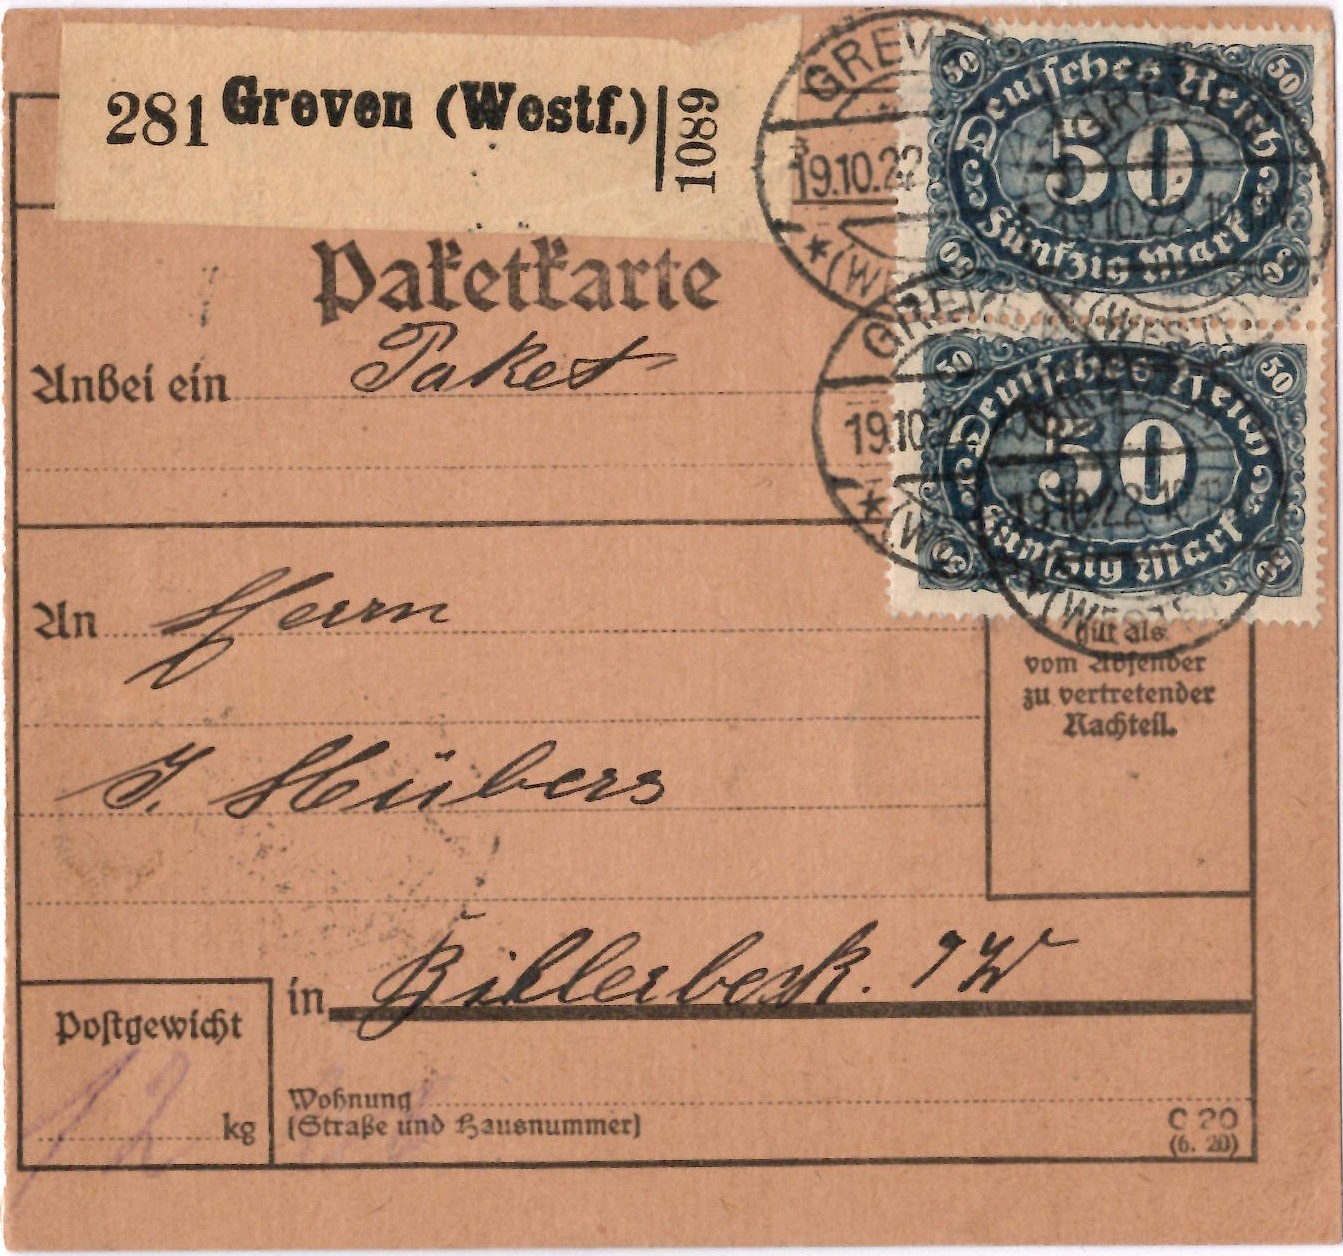 281 Greven (Westf.) 1089
GREVEN
19.10.22
* (WESTF.)
50 50
Deutsches Reich
50
Fünfzig Mark
50 50
GREVEN
19.10.22
50 50
Deutsches Reich
50
Fünfzig Mark
50 50
19.10.22.10-11
* (WESTF.)
Paketkarte
Anbei ein Paket
An Herrn
J. Hübers
gilt als
vom Absender
zu vertretender
Nachteil.
in Billerbeck. i W
Postgewicht
12 kg
Wohnung
(Straße und Hausnummer)
C 20
(6. 20)